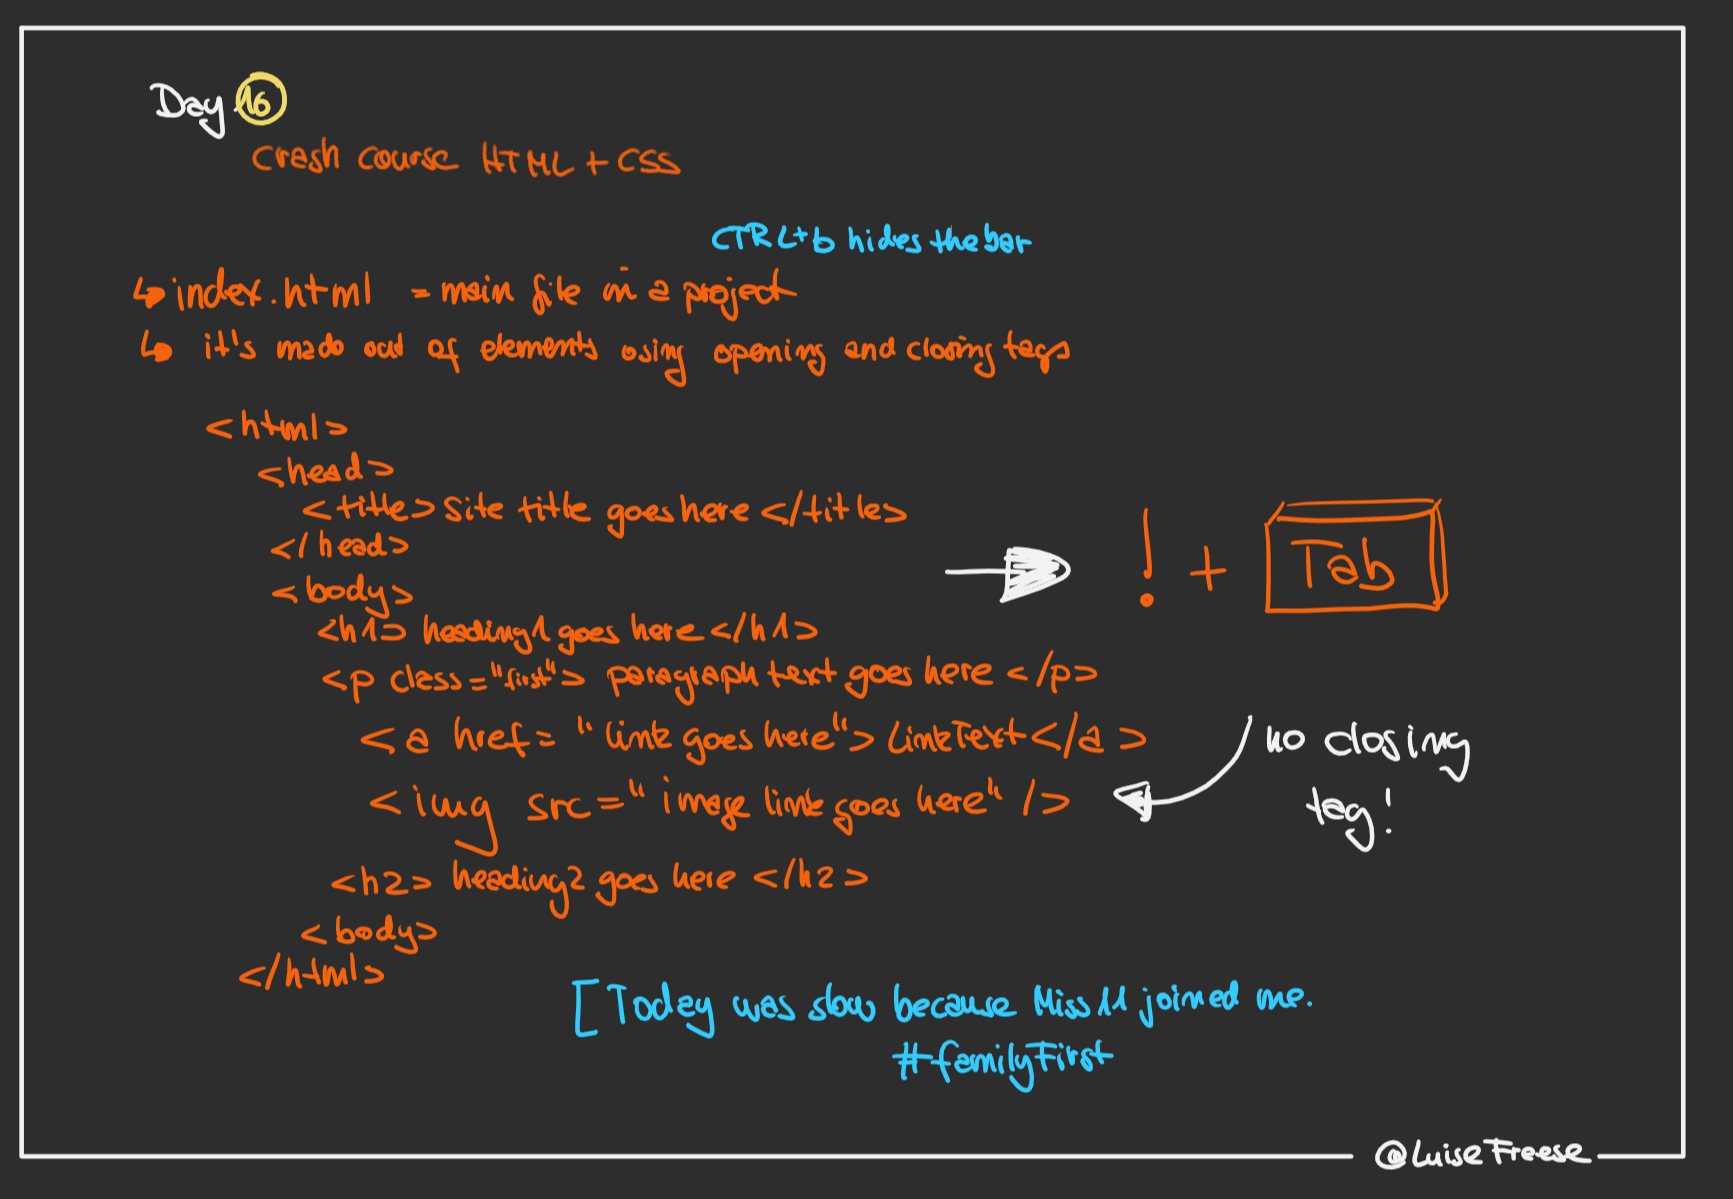 Day 16
crash course HTML + CSS
CTRL+b hides the bar
↳ index.html = main file in a project
↳ it's made out of elements using opening and closing tags
<html>
<head>
<title> Site title goes here </title>
</head>
<body>
<h1> heading1 goes here </h1>
<p class="first"> paragraph text goes here </p>
<a href="link goes here"> LinkText</a>
<img src="image link goes here" />
<h2> heading2 goes here </h2>
<body>
</html>
! + Tab
no closing
tag!
[Today was slow because Miss 11 joined me.
#familyFirst
@LuiseFreese